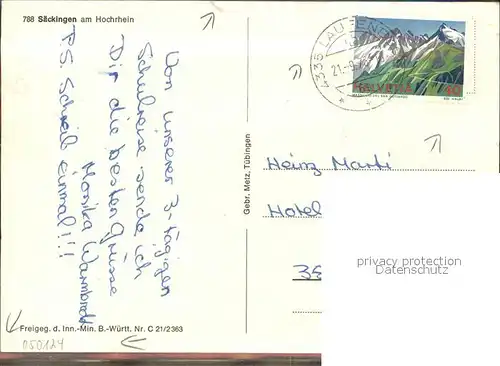 788 Säckingen am Hochrhein
Von unserer 3-tägigen
Schulreise sende ich
Dir die besten Grüsse
Monika
P.S. Schreib einmal!!!
4335 LAUFEN
21.-9.
HELVETIA
40
Gebr. Metz, Tübingen
Heinz Marti
Hotel
privacy protection
Datenschutz
Freigeg. d. Inn.-Min. B.-Württ. Nr. C 21/2363
050124